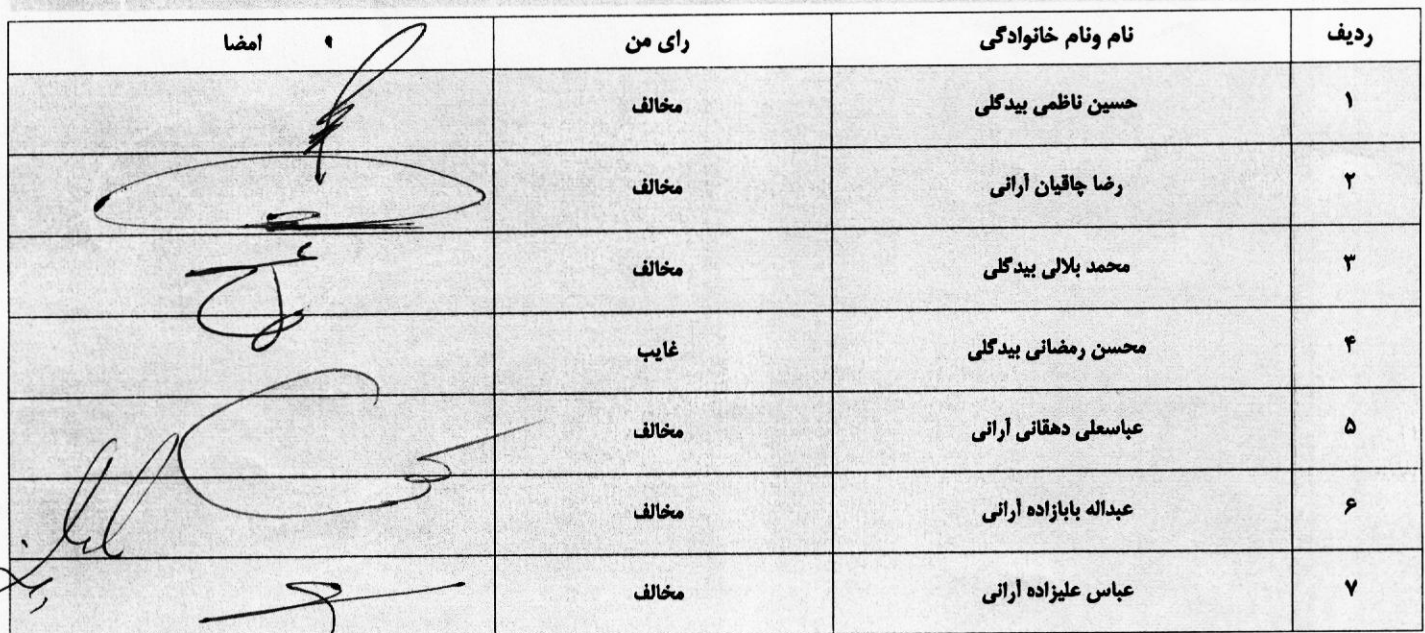 ردیف نام ونام خانوادگی رای من امضا
۱ حسین ناظمی بیدگلی مخالف
۲ رضا چاقیان آرانی مخالف
۳ محمد بلالی بیدگلی مخالف
۴ محسن رمضانی بیدگلی غایب
۵ عباسعلی دهقانی آرانی مخالف
۶ عبداله بابازاده آرانی مخالف
۷ عباس علیزاده آرانی مخالف